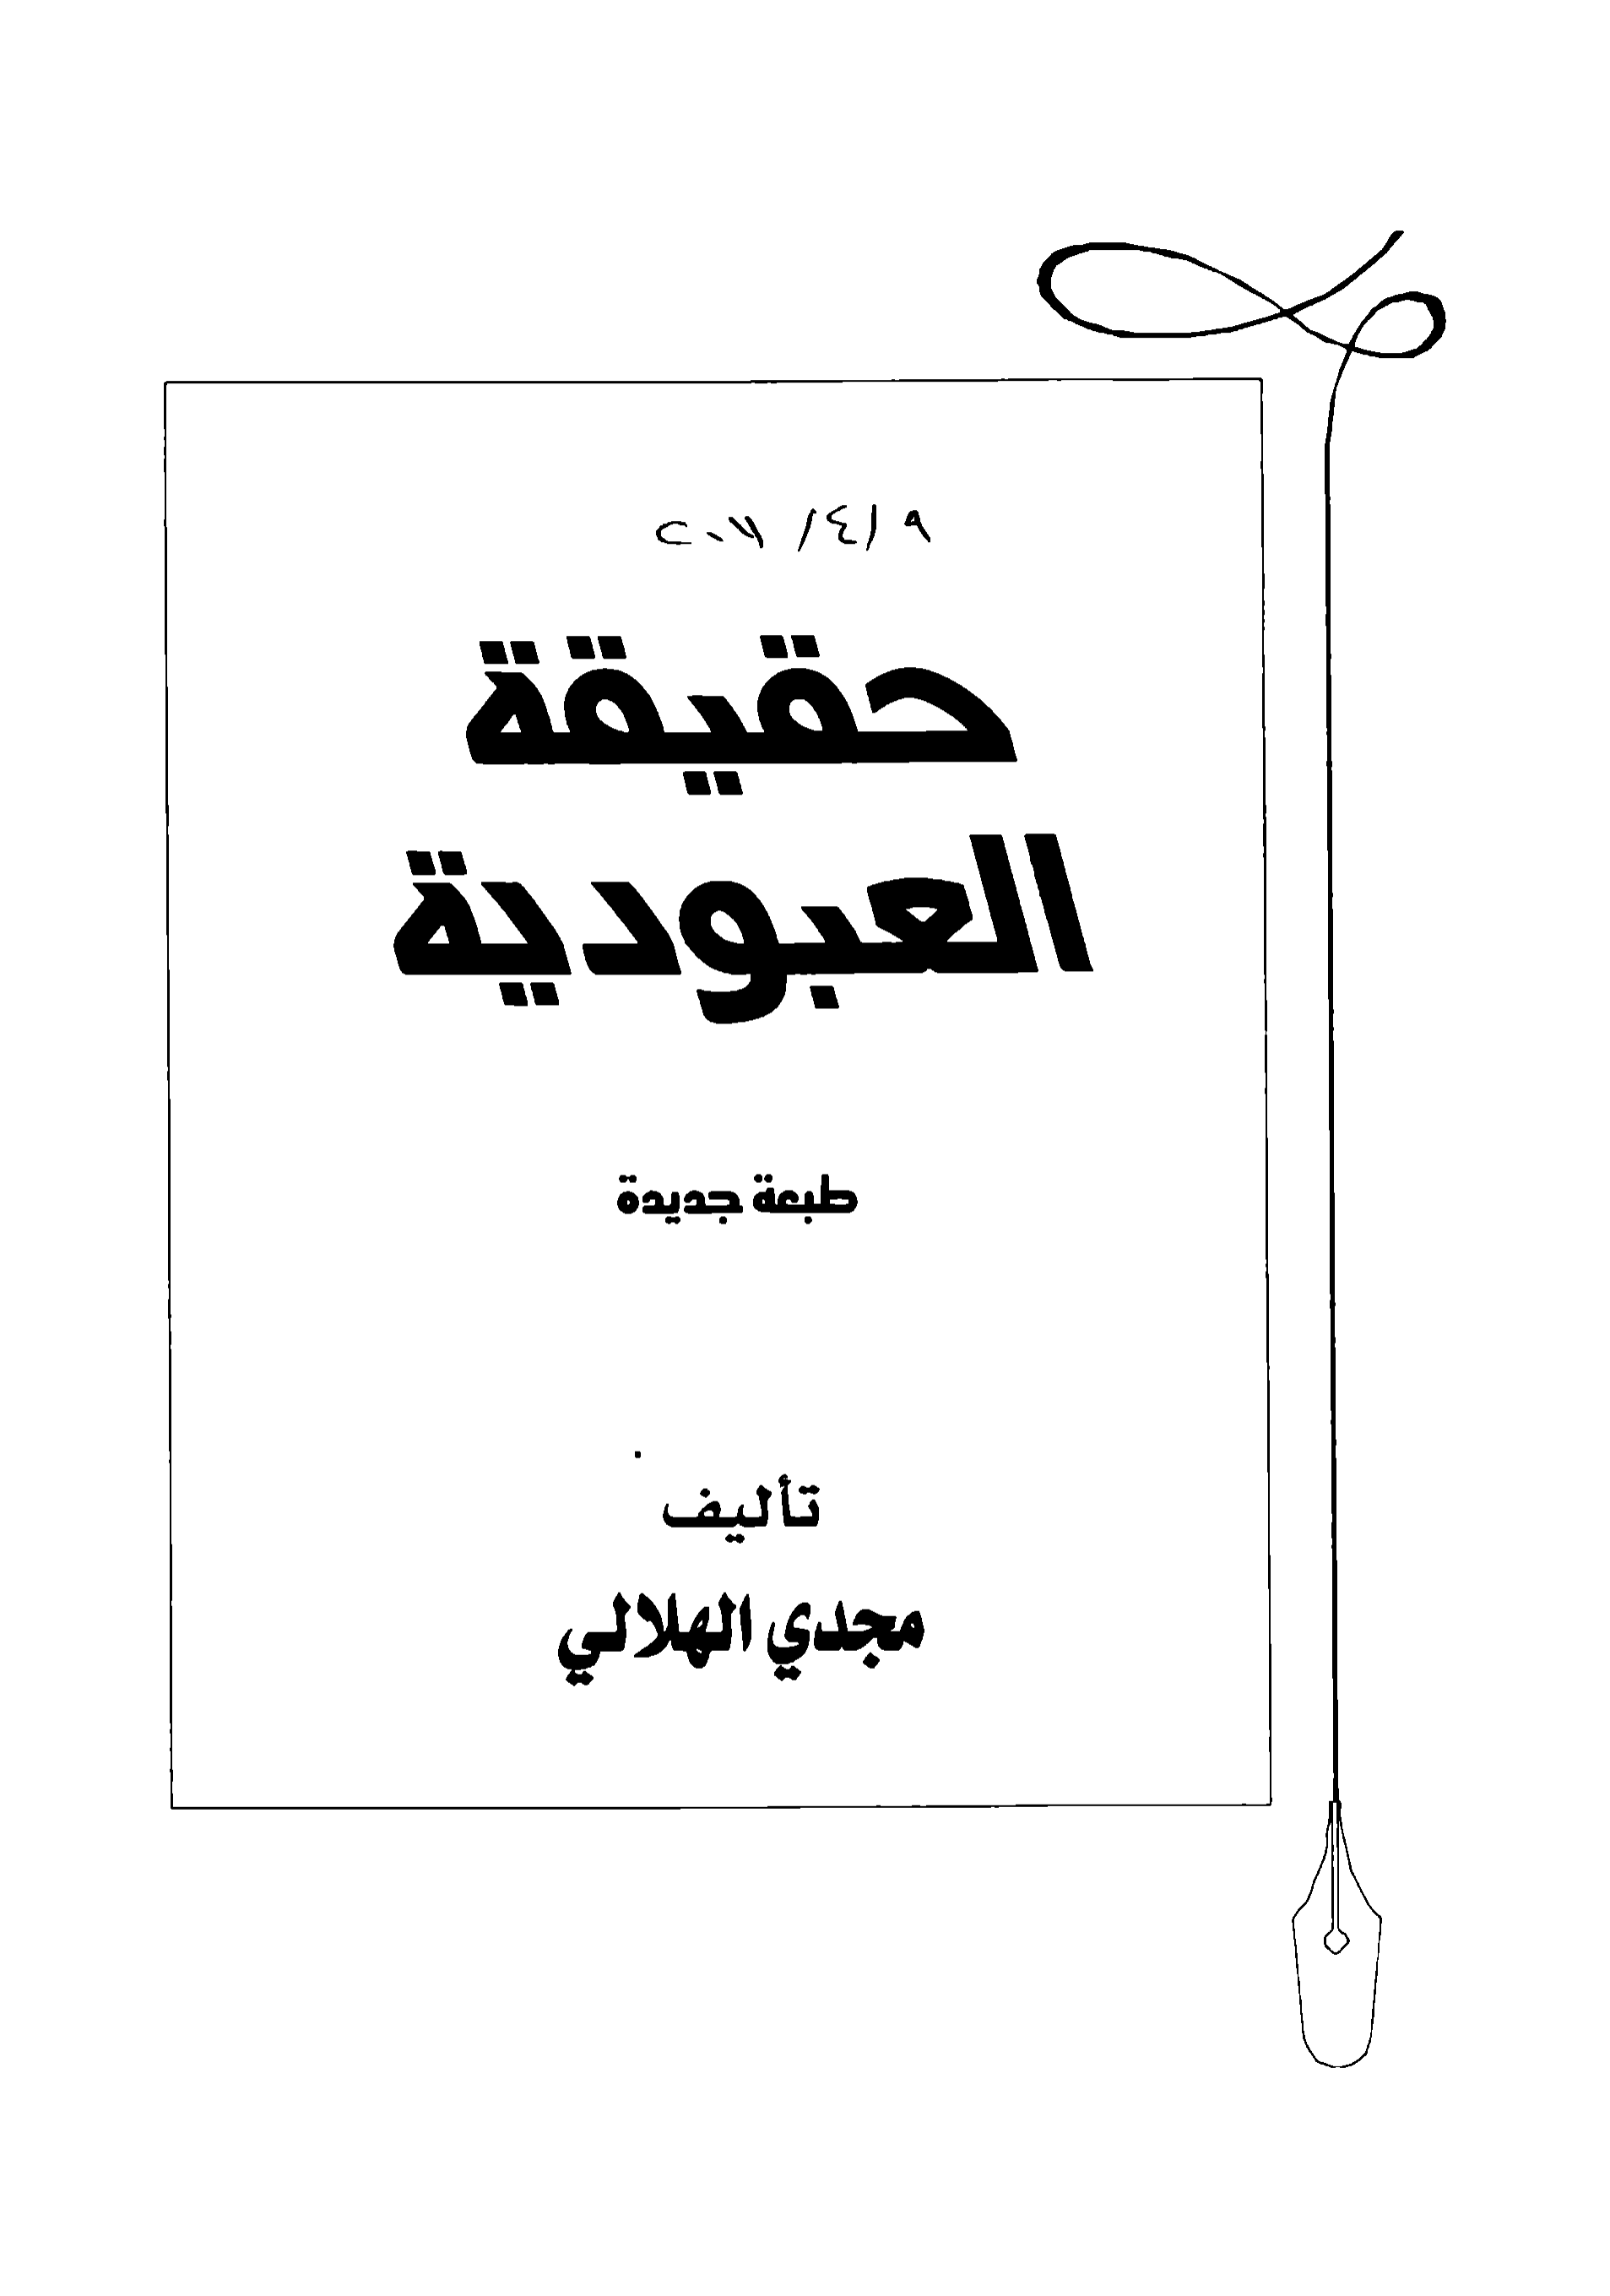 ٩/٤/٢٠١١
حقيقة
العبودية
طبعة جديدة
تأليف
مجدي الهلالي